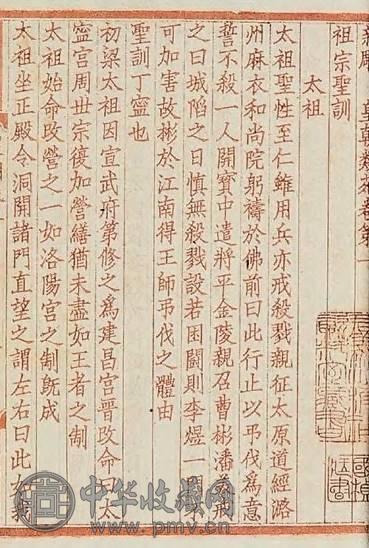 皇朝類苑卷第一
祖宗聖訓
太祖
太祖聖性至仁雖用兵亦戒殺戮親征太原道經潞
州麻衣和尚院躬禱於佛前曰此行止以弔伐為意
誓不殺一人開寶中遣將平金陵親召曹彬潘美戒
之曰城陷之日慎無殺戮設若困鬬則李煜一門
可加害故彬於江南得王師弔伐之體由
聖訓丁寧也
初梁太祖因宣武府第修之為建昌宮晉改命曰大
寧宮周世宗復加營繕猶未盡如王者之制
太祖始命改營之一如洛陽宮之制既成
太祖坐正殿令洞開諸門直望之謂左右曰此
中华收藏网
www.pmv.cn